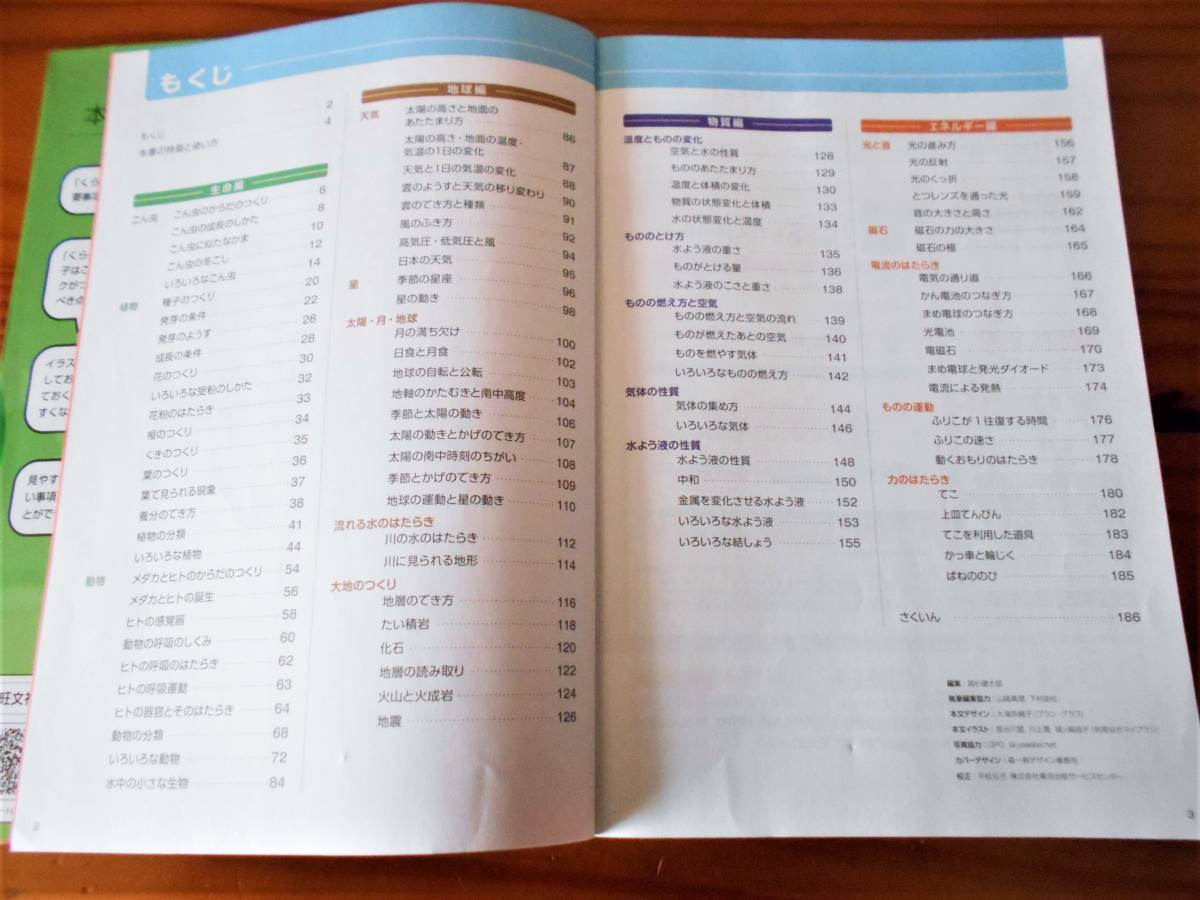 もくじ
もくじ 2
本書の特長と使い方 4
生命編
こん虫 こん虫のからだのつくり 6
こん虫の成長のしかた 8
こん虫に似たなかま 10
こん虫の冬ごし 12
いろいろなこん虫 14
植物 種子のつくり 20
発芽の条件 22
発芽のようす 26
成長の条件 28
花のつくり 30
いろいろな受粉のしかた 32
花粉のはたらき 33
根のつくり 34
くきのつくり 35
葉のつくり 36
葉で見られる現象 37
養分のでき方 38
植物の分類 41
いろいろな植物 44
動物 メダカとヒトのからだのつくり 54
メダカとヒトの誕生 56
ヒトの感覚器 58
動物の呼吸のしくみ 60
ヒトの呼吸のはたらき 62
ヒトの呼吸運動 63
ヒトの器官とそのはたらき 64
動物の分類 68
いろいろな動物 72
水中の小さな生物 84
地球編
天気 太陽の高さと地面の
あたたまり方 86
太陽の高さ・地面の温度・
気温の1日の変化 87
天気と1日の気温の変化 88
雲のようすと天気の移り変わり 90
雲のでき方と種類 91
風のふき方 92
高気圧・低気圧と風 94
日本の天気 95
星 季節の星座 96
星の動き 98
太陽・月・地球
月の満ち欠け 100
日食と月食 102
地球の自転と公転 103
地軸のかたむきと南中高度 104
季節と太陽の動き 106
太陽の動きとかげのでき方 107
太陽の南中時刻のちがい 108
季節とかげのでき方 109
地球の運動と星の動き 110
流れる水のはたらき
川の水のはたらき 112
川に見られる地形 114
大地のつくり
地層のでき方 116
たい積岩 118
化石 120
地層の読み取り 122
火山と火成岩 124
地震 126
2
物質編
温度とものの変化
空気と水の性質 128
もののあたたまり方 129
温度と体積の変化 130
物質の状態変化と体積 133
水の状態変化と温度 134
もののとけ方
水よう液の重さ 135
ものがとける量 136
水よう液のこさと重さ 138
ものの燃え方と空気
ものの燃え方と空気の流れ 139
ものが燃えたあとの空気 140
ものを燃やす気体 141
いろいろなものの燃え方 142
気体の性質
気体の集め方 144
いろいろな気体 146
水よう液の性質
水よう液の性質 148
中和 150
金属を変化させる水よう液 152
いろいろな水よう液 153
いろいろな結しょう 155
エネルギー編
光と音 光の進み方 156
光の反射 157
光のくっ折 158
とつレンズを通った光 159
音の大きさと高さ 162
磁石 磁石の力の大きさ 164
磁石の極 165
電流のはたらき
電気の通り道 166
かん電池のつなぎ方 167
まめ電球のつなぎ方 168
光電池 169
電磁石 170
まめ電球と発光ダイオード 173
電流による発熱 174
ものの運動
ふりこが1往復する時間 176
ふりこの速さ 177
動くおもりのはたらき 178
力のはたらき
てこ 180
上皿てんびん 182
てこを利用した道具 183
かっ車と輪じく 184
ばねののび 185
さくいん 186
編集：
執筆編集協力：
本文デザイン：
本文イラスト：
写真協力：OPO,
カバーデザイン：
校正：
3
本
「くら
要事項
「くら
子はこ
クがつ
べき点
イラス
してお
ておく
すくな
見やす
い事項
とがで
旺文社